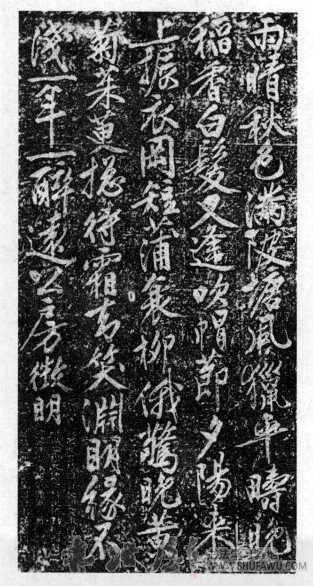 雨晴秋色滿陂塘風獵平疇晚
稻香白髮又逢吹帽節夕陽來
上振衣岡短蒲衰柳俄驚晚黃
菊茱萸揔待霜笑淵明緣不
淺一年一醉遠公房徵明
WWW.SHUFAWU.COM